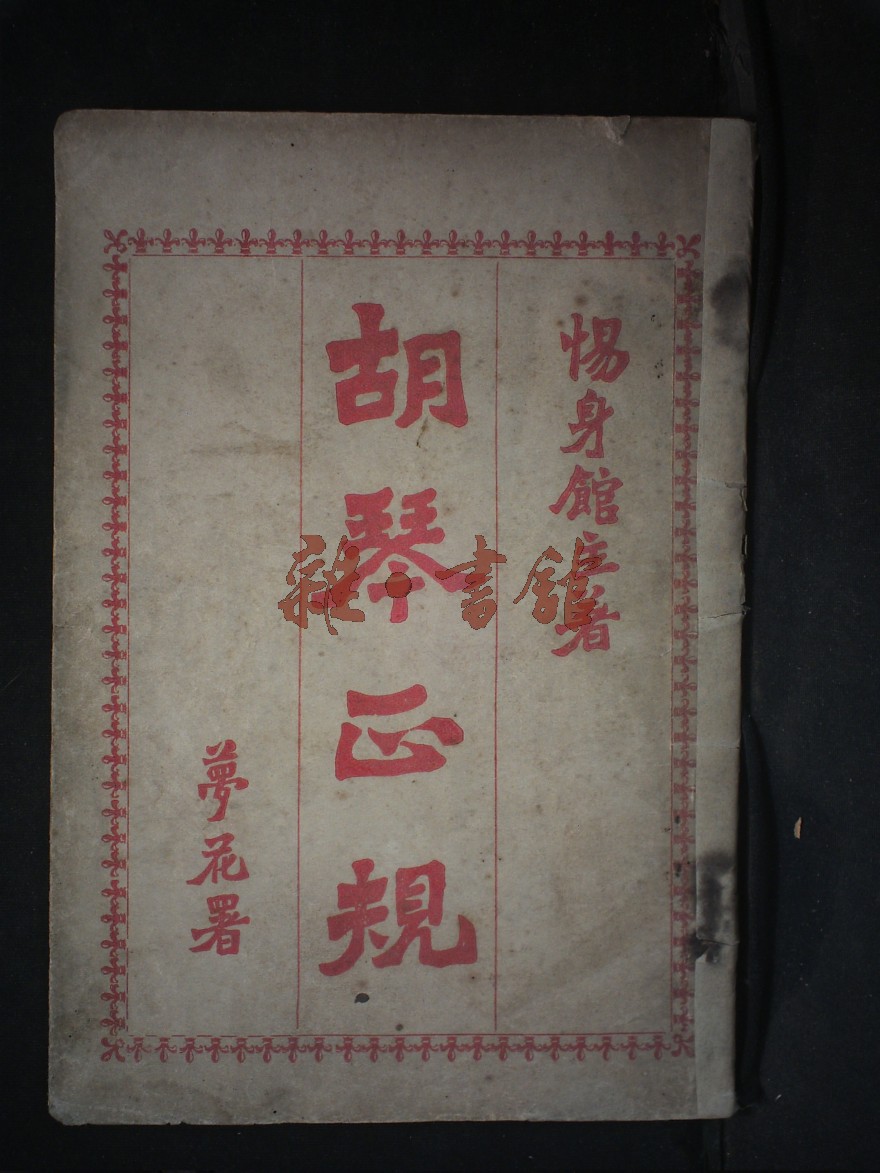 惕身館主著
胡琴正規
夢花署
雜·書館